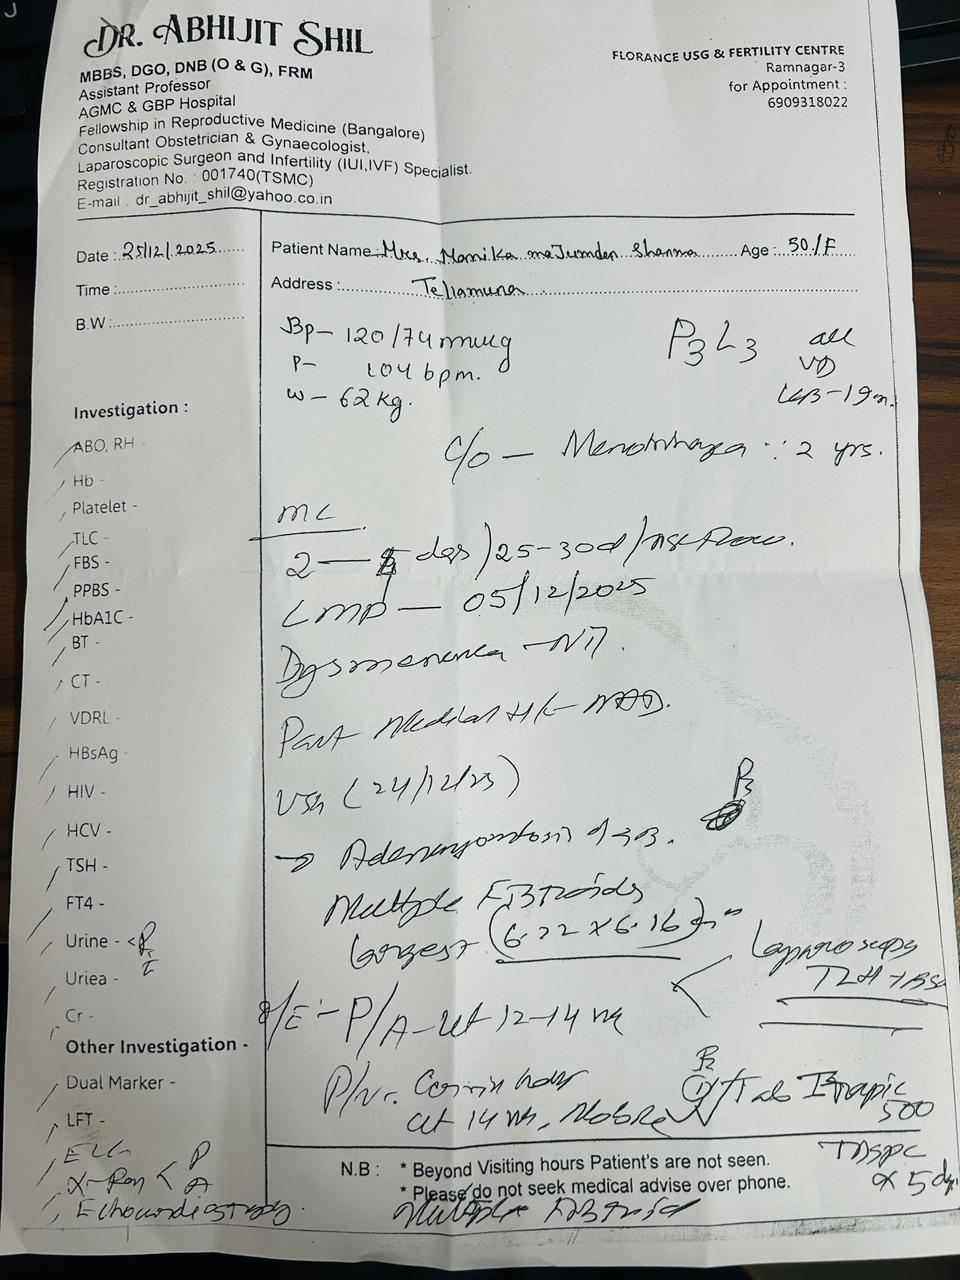 DR. ABHIJIT SHIL
MBBS, DGO, DNB (O & G), FRM
Assistant Professor
AGMC & GBP Hospital
Fellowship in Reproductive Medicine (Bangalore)
Consultant Obstetrician & Gynaecologist,
Laparoscopic Surgeon and Infertility (IUI,IVF) Specialist.
Registration No. : 001740(TSMC)
E-mail : dr_abhijit_shil@yahoo.co.in
FLORANCE USG & FERTILITY CENTRE
Ramnagar-3
for Appointment :
6909318022
Date : 25/12/.2025
Time :
B.W :
Patient Name : Mrs. Monika maJumder Sharma Age : 50/F
Address : Teliamura
Bp- 120/74 mmHg
P- 104 bpm.
W- 62 kg.
P3L3 all
VD
LCB-19
C/O - Menorrhagia 2 yrs.
Investigation :
ABO, RH -
Hb -
Platelet -
TLC -
FBS -
PPBS -
HbA1C -
BT -
CT -
VDRL -
HBsAg -
HIV -
HCV -
TSH -
FT4 -
Urine -
Uriea -
Cr -
Other Investigation -
Dual Marker -
LFT -
X-Ray < P
A
MC
2 - 5 /25-30d/
LMP - 05/12/2025
Dysmenorrhea - Nil.
Past Medical H/O - NAD.
USG (24/12/25)
→ Adenomyomtosis
Multiple Fibroids
Largest (6.22 x 6.16)
O/E - P/A - ut 12-14
P/V.
ut 14 , Mobile
Laparoscopy
TLH + BSO
Rx
Tab
500
x 5 dy.
N.B : * Beyond Visiting hours Patient's are not seen.
* Please do not seek medical advise over phone.
Multiple Fibroid